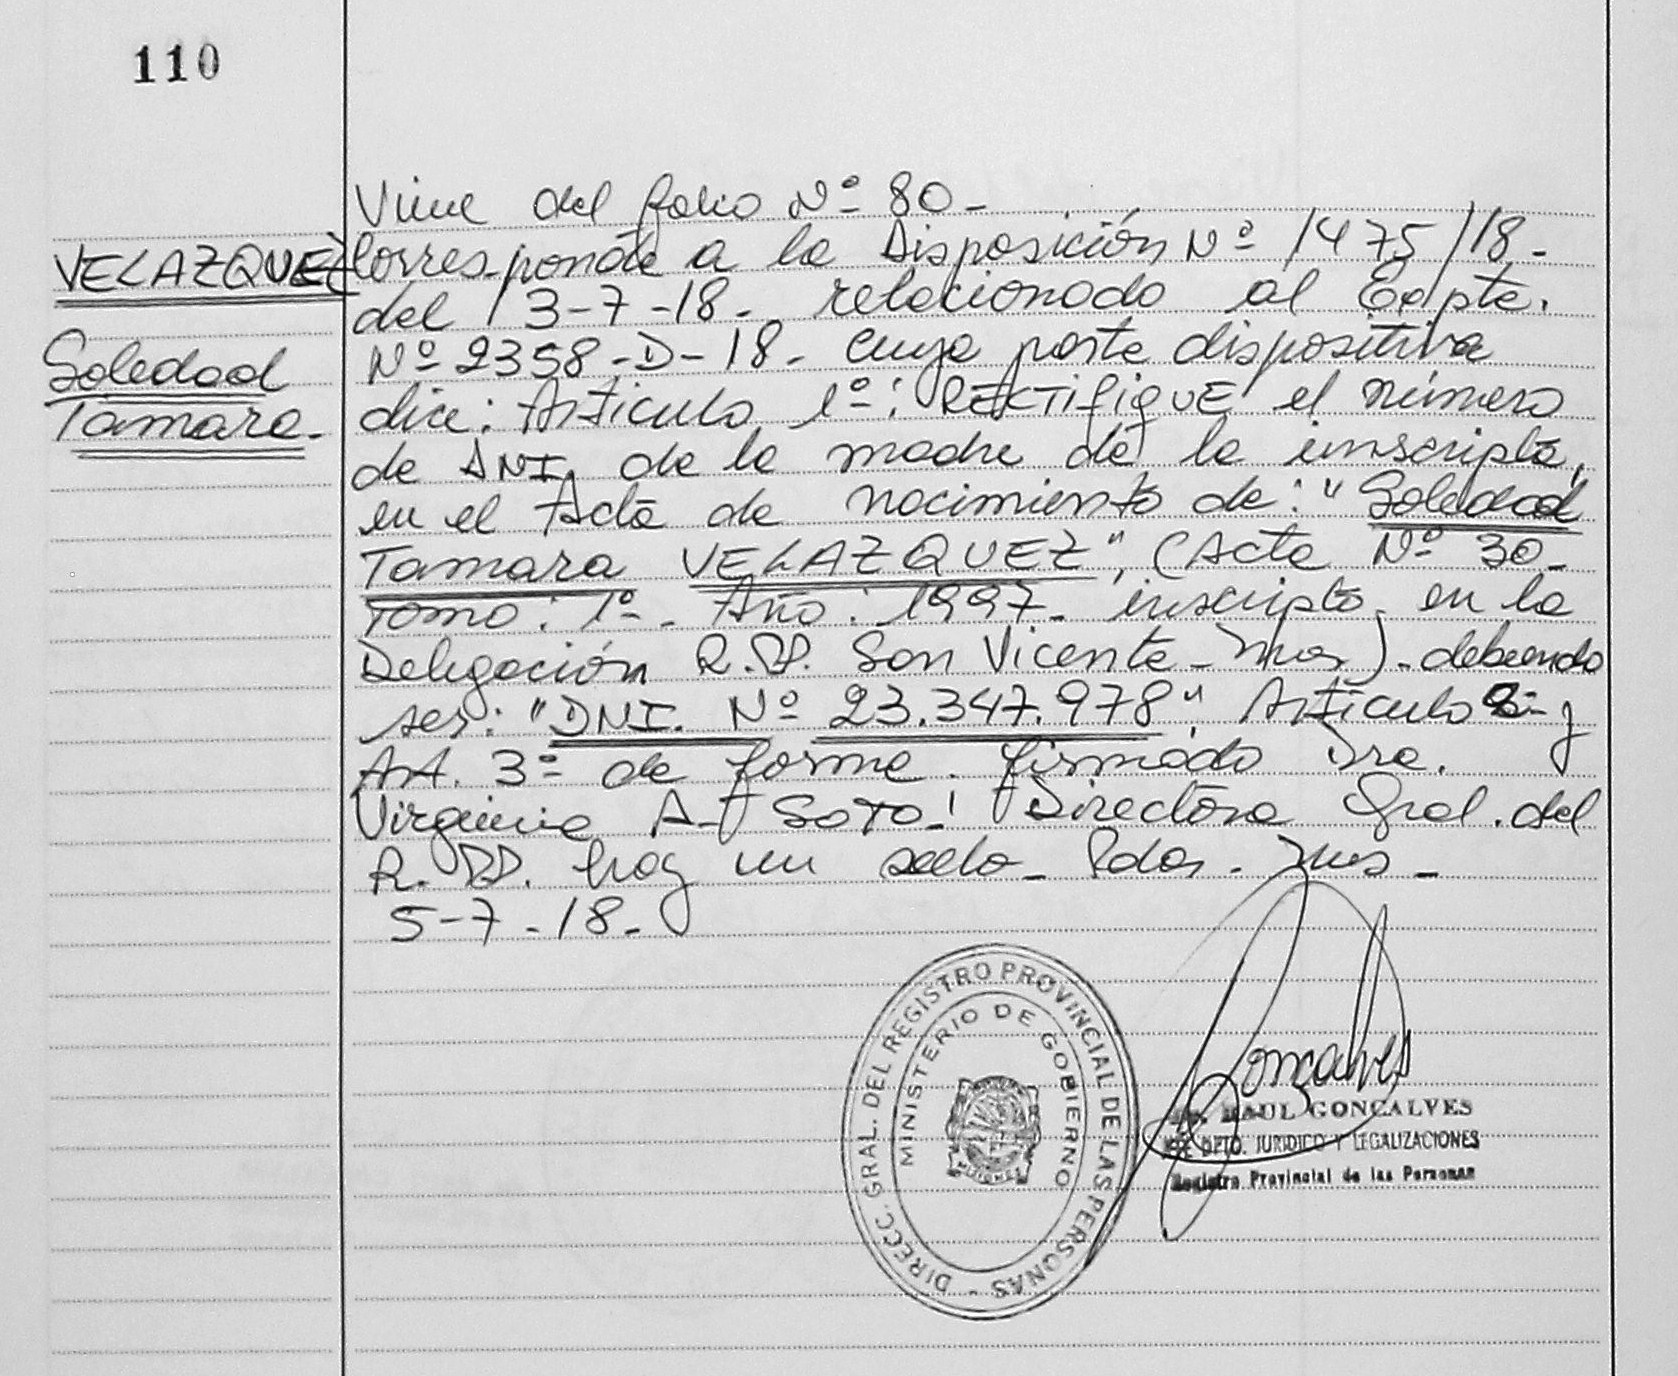 110
VELAZQUEZ
Soledad
Tamara.
Viene del folio Nº 80-
Corresponde a la Disposición Nº 1475/18-
del 13-7-18- relacionado al Expte.
Nº 2358-D-18- cuya parte dispositiva
dice: Artículo 1º: RECTIFIQUE el número
de DNI, de la madre de la inscripta,
en el Acta de nacimiento de: "Soledad
Tamara VELAZQUEZ", (Acta Nº 30-
Tomo: 1º- Año: 1997- inscripta, en la
Delegación R.PP. San Vicente- Mnes)- debiendo
ser: "DNI. Nº 23.347.978" Artículo 2º y
Art. 3º de forma. firmado Dra.
Virginia A. SOTO- Directora Gral. del
R. PP. hay un sello- Pdas. Mnes-
5-7-18-
DIRECC. GRAL. DEL REGISTRO PROVINCIAL DE LAS PERSONAS -
MINISTERIO DE GOBIERNO
MISIONES
Goncalves
RAUL GONCALVES
DPTO. JURIDICO Y LEGALIZACIONES
Registro Provincial de las Personas